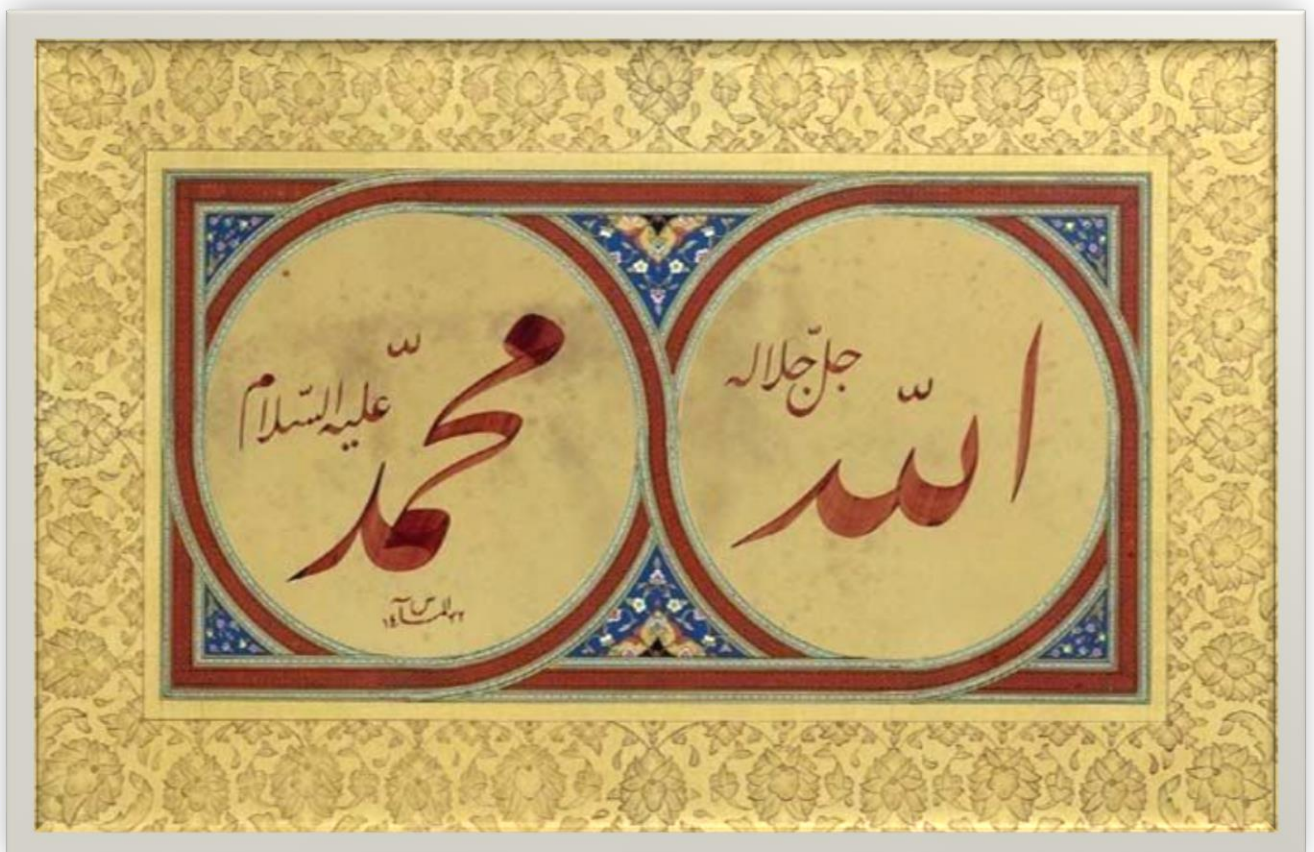 الله
جلّ جلاله
محمّد
عليه السّلام